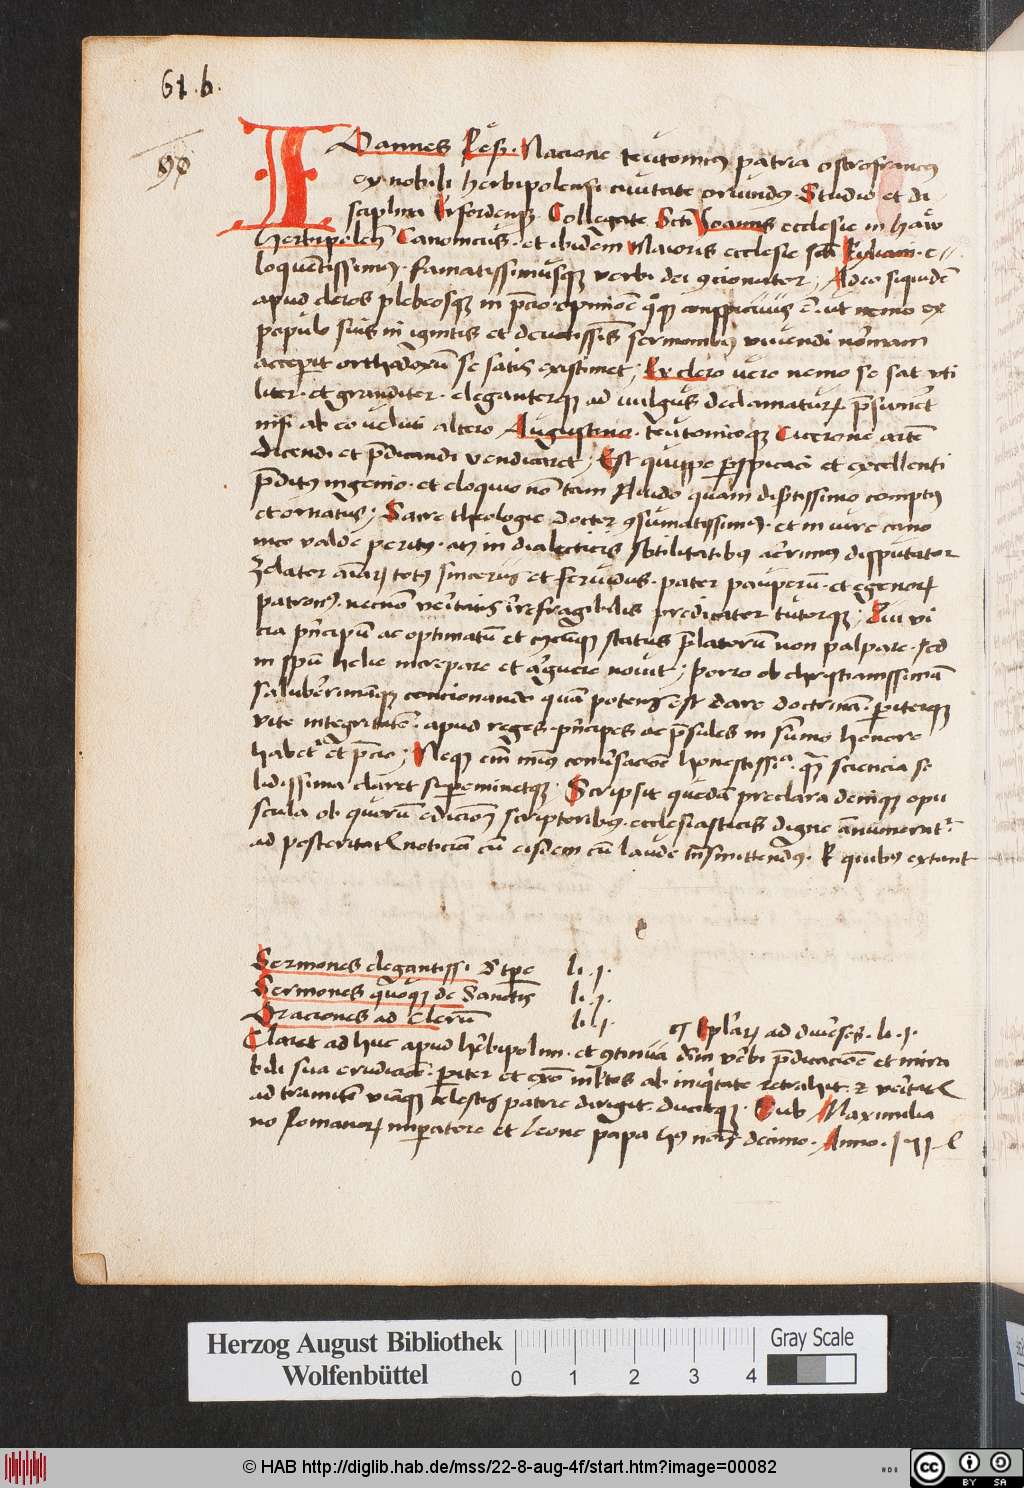 61.b.
90
Ioannes Reß. Nacione teutonicus patria ostrofrancus
ex nobili herbipolensi ciuitate oriundus. Studio et di
sciplina Erfordensis. Collegate Scti Ioannis ecclesie in haw
herbipolen Canonicus. et ibidem Maioris ecclesie scti Kyliani. e
loquentissimus. famatissimusque verbi dei concionator, Adeo siquidem
apud cleros plebeosque in precio. opinione quoque conspicuus est. ut nemo ex
populo suis in ignitis et deuotissimis sermonibus viuendi normam
acceperit orthodoxum se satis existimet; Ex clero vero nemo se sat vti
liter. et granditer. eleganterque ad vulgus declamaturum presumeret
nisi ab eo veluti altero Augustino. teutonicoque Cicerone artem
dicendi et predicandi vendicaret; Est quippe perspicaci et excellenti
preditus ingenio. et eloquio non tam Nudo quam disertissimo comptus
et ornatus; Sacre theologie Doctor consumatissimus. et in iure cano
nico valde peritus. atque in dialecticis subtilitatibus acerrimus disputator
Zelator animarum totus sincerus et feruidus. pater pauperum. et egenorum
patronus. necnon veritatis irrefragibilis predicator tutorque; Qui vi
cia principum ac optimatum et cuiuscumque status prelatorum non palpare. sed
in spiritu helie increpare et arguere nouit; Porro ob christianissimam
saluberrimamque concionando quam potens est dare doctrinam. pariterque
vite integritatem. apud reges. principes ac presules in summo honore
habetur et precio; Neque enim minus conuersacione honestissima. quam sciencia so
lidissima claret supereminetque. Scripsit quedam preclara denique opu
scula ob quorum edicionem scriptoribus. ecclesiasticis digne annumeratur.
ad posteritatis noticiam cum eisdem cum laude transmittendus. E quibus extant
Sermones elegantissimi de tempore li. i.
Sermones quoque de Sanctis li. i.
Oraciones ad Clerum li. i.
Epistolarum ad diuersos. li. i.
Claret ad huc apud herbipolim. et continua diuini verbi predicacione et mira
bili sua erudicione. pariter et exemplo multos ab iniquitate retrahit. et veritatis
ad tramitem viamque celestis patrie dirigit. ducitque. Sub Maximilia
no Romanorum imperatore et Leone papa huius nominis decimo. Anno.
Herzog August Bibliothek
Wolfenbüttel
0 1 2 3 4
Gray Scale
© HAB http://diglib.hab.de/mss/22-8-aug-4f/start.htm?image=00082
HDB
cc BY SA